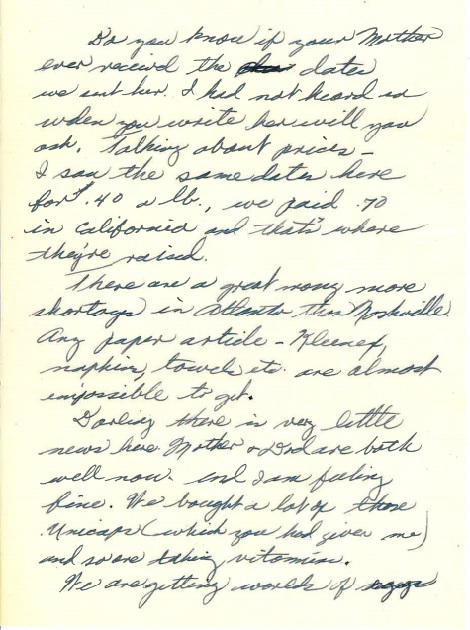 Do you know if your Mother
ever receivd the dates
we sent her. I had not heard so
when you write her will you
ask. Talking about prices -
I saw the same dates here
for $.40 a lb., we paid .70
in California and that's where
they're raised.
There are a great many more
shortages in Atlanta than Nashville.
Any paper article - Kleenex,
napkins, towels etc. are almost
impossible to get.
Darling there is very little
news here. Mother & Dad are both
well now. and I am feeling
fine. We bought a lot of those
Unicaps (which you had given me)
and so are taking vitamins.
We are getting worlds of eggs